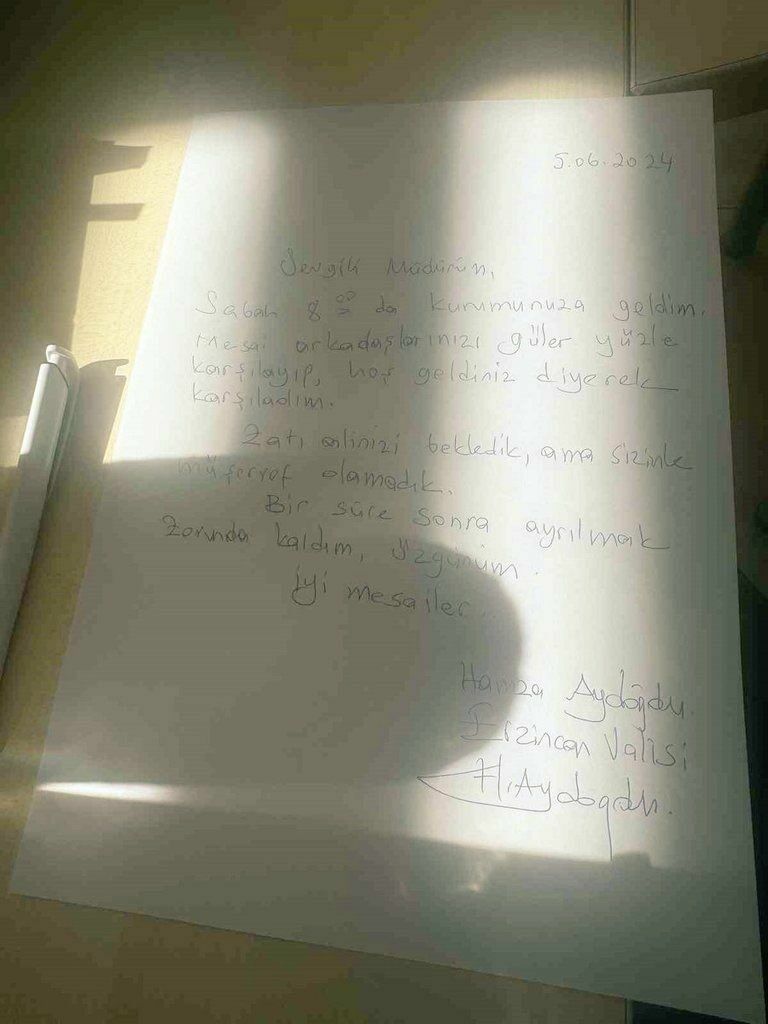 5.06.2024
Sevgili Müdürüm,
Sabah 8:00 da kurumunuza geldim.
Mesai arkadaşlarınızı güler yüzle
karşılayıp, hoş geldiniz diyerek
karşıladım.
Zatı alinizi bekledik, ama sizinle
müşerref olamadık.
Bir süre sonra ayrılmak
zorunda kaldım, üzgünüm.
İyi mesailer...
Hamza Aydoğdu
Erzincan Valisi
H.Aydoğdu.